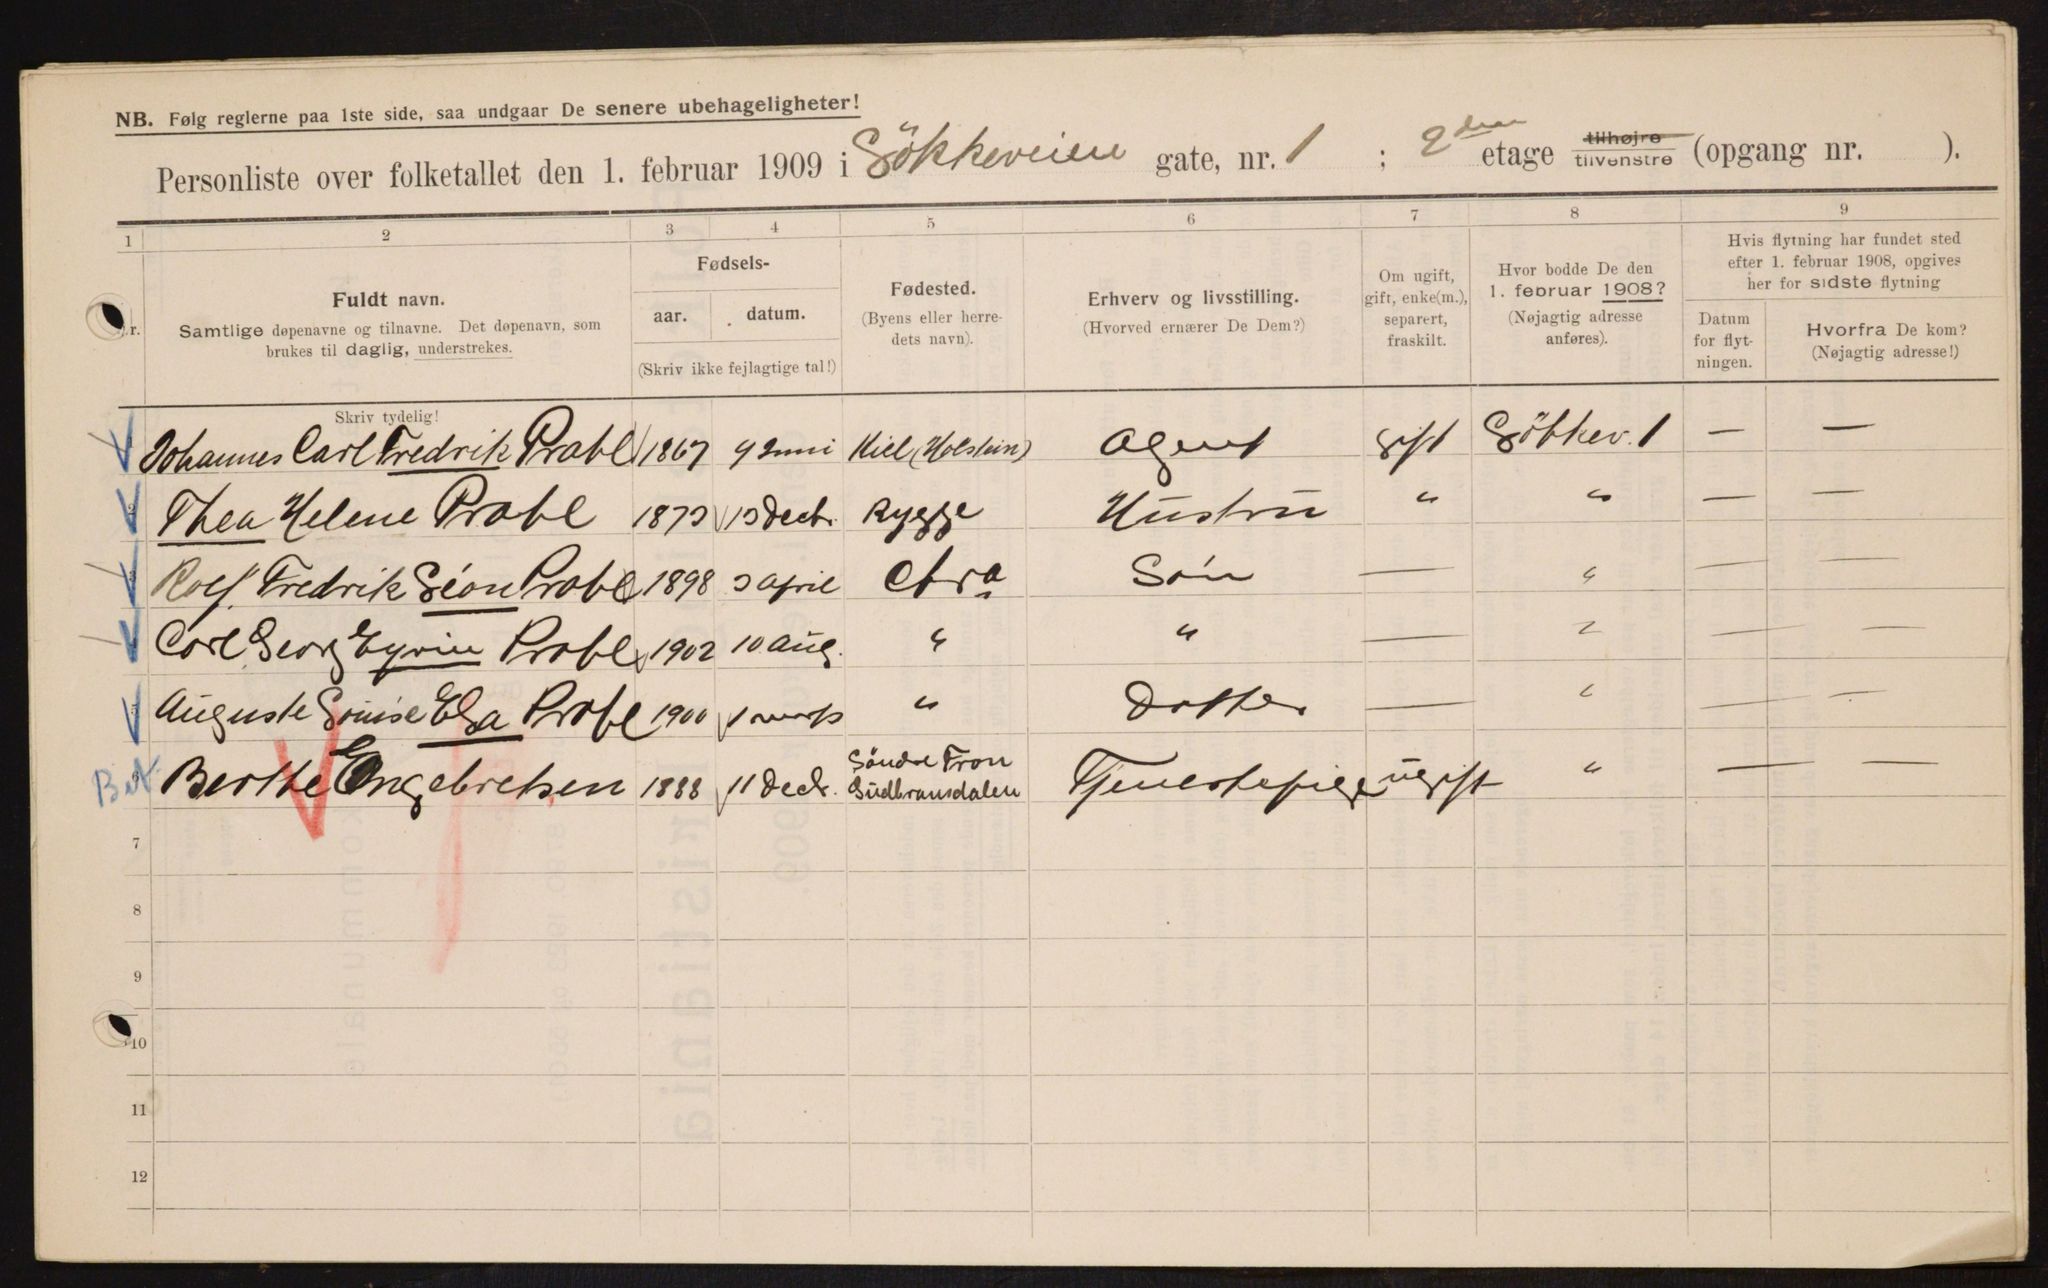 NB. Følg reglerne paa 1ste side, saa undgaar De senere ubehageligheter!
Personliste over folketallet den 1. februar 1909 i Gökkeveien gate, nr. 1 ; 2den etage tilhøjre tilvenstre (opgang nr. ).
1 2 3 4 5 6 7 8 9
Nr.
Fuldt navn.
Samtlige døpenavne og tilnavne. Det døpenavn, som
brukes til daglig, understrekes.
Skriv tydelig!
Fødsels-
aar. datum.
(Skriv ikke fejlagtige tal!)
Fødested.
(Byens eller herre-
dets navn).
Erhverv og livsstilling.
(Hvorved ernærer De Dem?)
Om ugift,
gift, enke(m.),
separert,
fraskilt.
Hvor bodde De den
1. februar 1908?
(Nøjagtig adresse
anføres).
Hvis flytning har fundet sted
efter 1. februar 1908, opgives
her for sidste flytning
Datum
for flyt-
ningen.
Hvorfra De kom?
(Nøjagtig adresse!)
1 Johannes Carl Fredrik Prabl 1867 9 Juni Kiel (Holstein) Agent gift Gökkev. 1 — —
2 Thea Helene Prabl 1873 13 Decbr. Rygge Hustru " " — —
3 Rolf Fredrik Léon Prabl 1898 3 April Chra Søn — " — —
4 Carl Georg Eyvin Prabl 1902 10 Aug. " " — " — —
5 Auguste Louise Elsa Prabl 1900 1 marts " Datter — " — —
6 Berthe Engebretsen 1888 11 Decbr. Söndre Fron
Gudbransdalen Tjenestepige ugift " — —
7
8
9
10
11
12